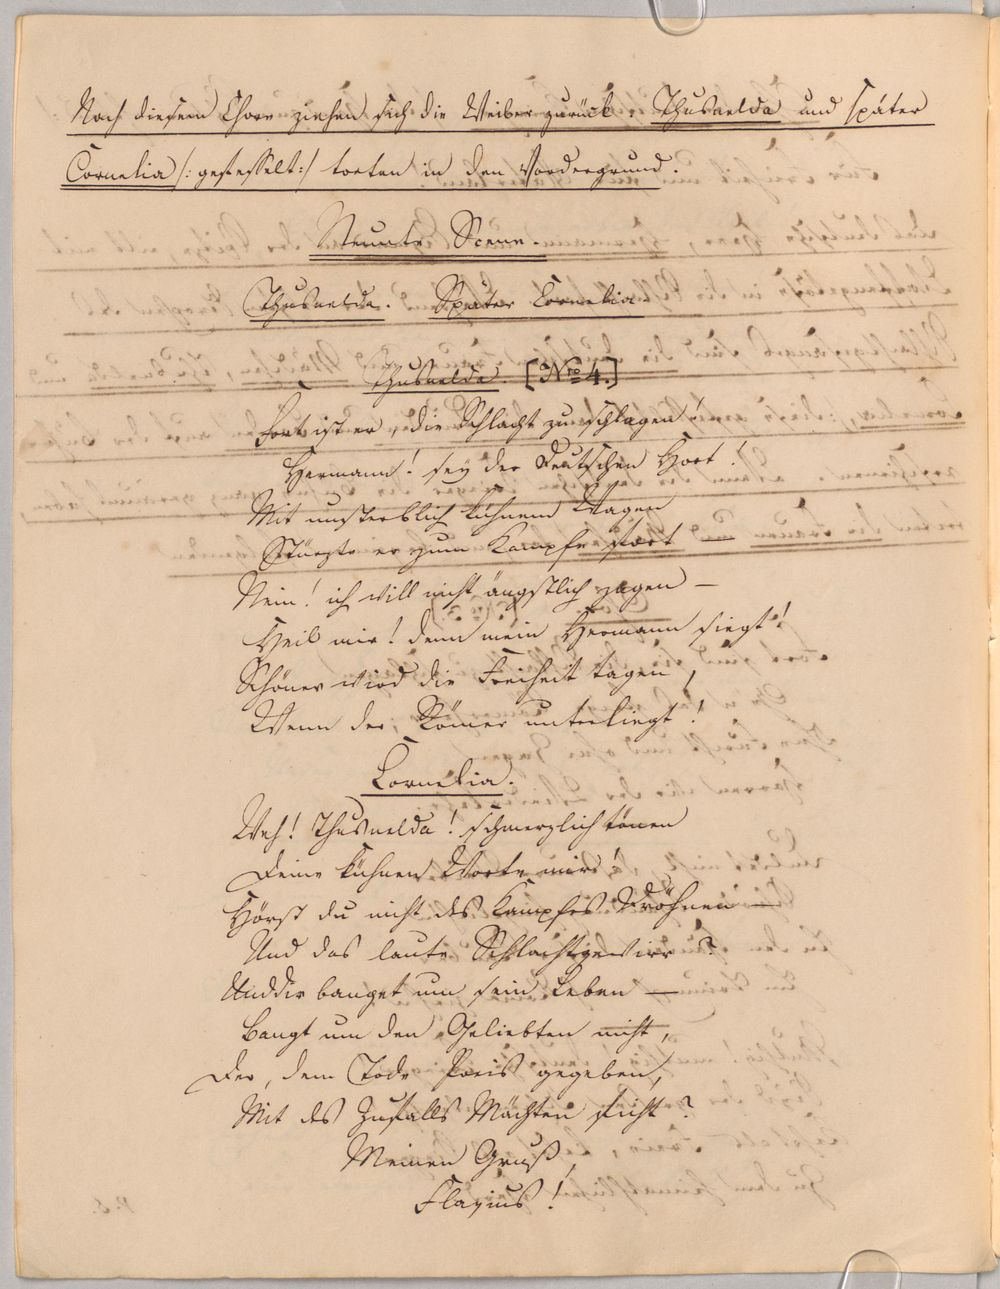 Nach diesem Chore ziehen sich die Weiber zurück. Thusnelda und später
Cornelia /: gefesselt :/ treten in den Vordergrund.
Neunte Scene.
Thusnelda. Später Cornelia.
Thusnelda. [No 4.]
Fort ist er, die Schlacht zu schlagen!
Hermann! sey der Deutschen Hort!
Mit unsterblich kühnem Wagen
Stürzte er zum Kampfe fort —
Nein! ich will nicht ängstlich zagen —
Heil mir! denn mein Hermann siegt!
Schöner wird die Freiheit tagen,
Wenn der Römer unterliegt!
Cornelia.
Weh! Thusnelda! schmerzlich tönen
Deine kühnen Worte mir!
Hörst du nicht des Kampfes Dröhnen —
Und das laute Schlachtgewirr?
Und dir banget um sein Leben —
Bangt um den Geliebten nicht,
Der, dem Tode Preis gegeben,
Mit des Zufalls Mächten ficht?
Meinen Gruß,
Flavius!